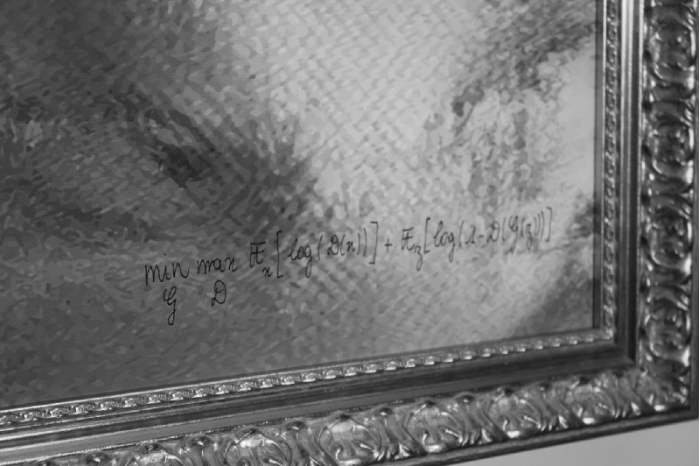 min max 𝔼x[log(D(x))] + 𝔼z[log(1-D(G(z)))]
G D